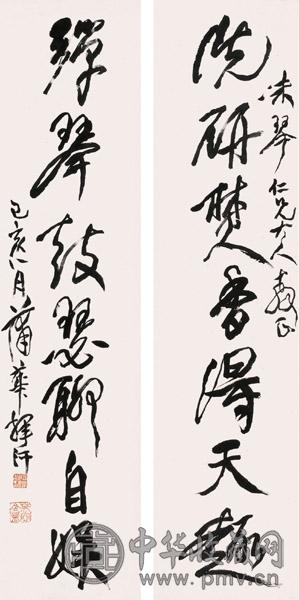 洗研焚香得天趣
琴仁兄大人教正
彈琴鼓瑟聊自娛
己亥六月蒲華揮汗
中华收藏网
www.pmv.cn